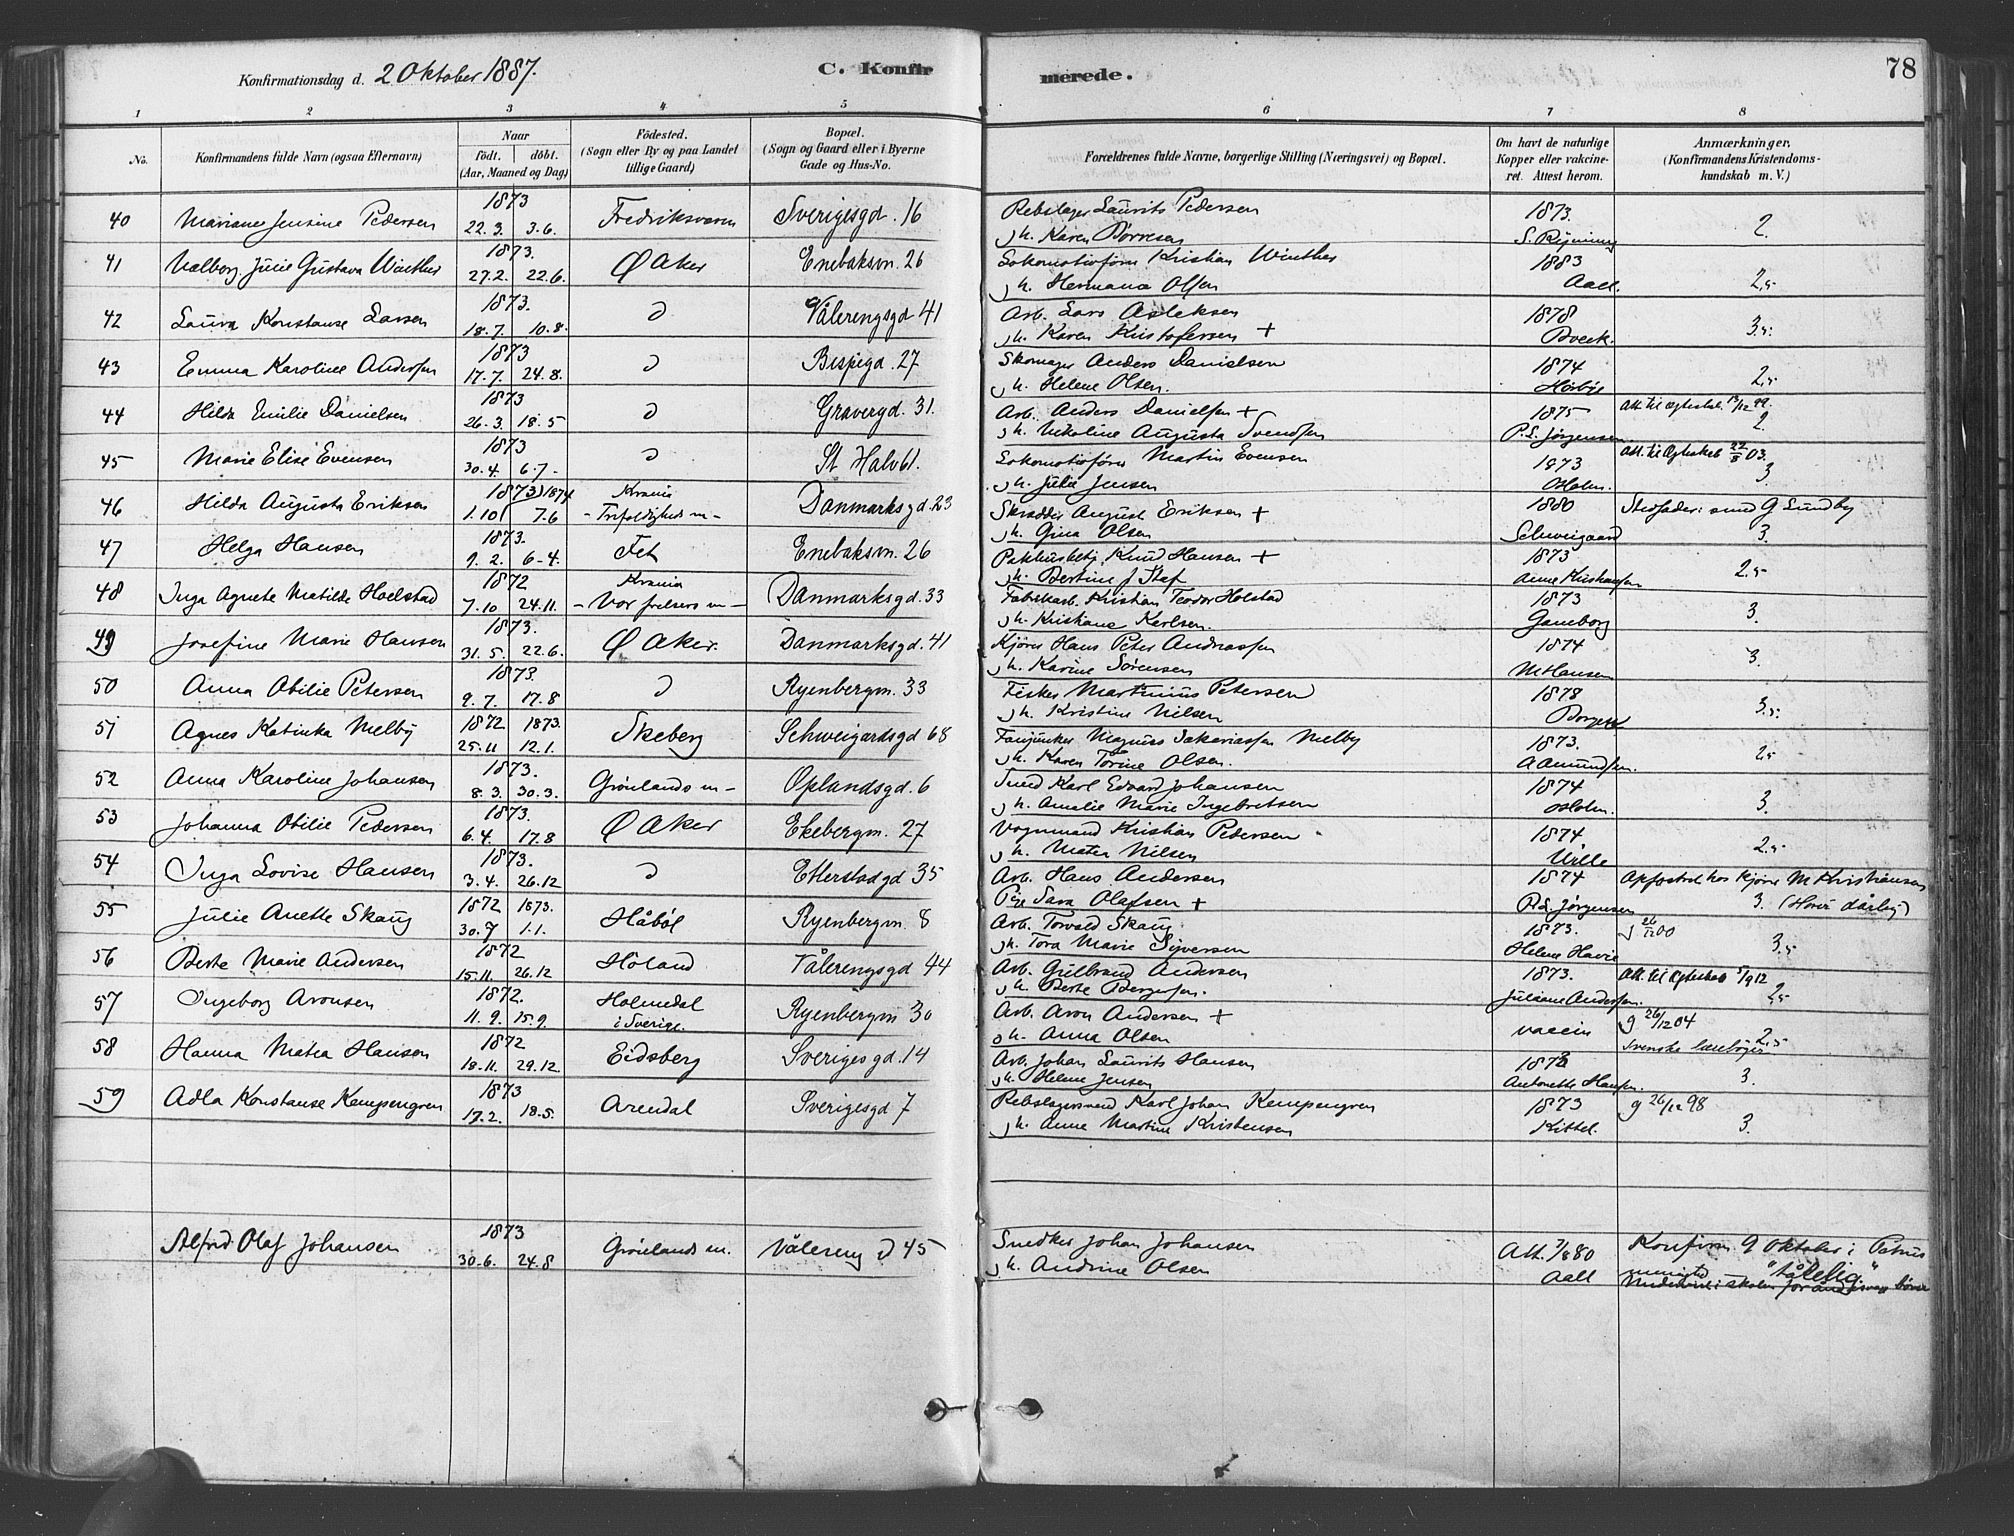 Konfirmationsdag d. 2 Oktober 1887. C. Konfirmerede. 78
1 2 3 4 5 6 7 8
No. Konfirmandens fulde Navn (ogsaa Efternavn) Naar født. døbt. (Aar, Maaned og Dag) Fødested. (Sogn eller By og paa Landet tillige Gaard) Bopæl. (Sogn og Gaard eller i Byerne Gade og Hus-No. Forældrenes fulde Navne, borgerlige Stilling (Næringsvei) og Bopæl. Om havt de naturlige Kopper eller vakcineret. Attest herom. Anmærkninger. (Konfirmandens Kristendomskundskab m. V.)
40 Mariane Jensine Pedersen 1873 22.3. 3.6. Fredriksværn Sverigesgd. 16 Rebslager Laurits Pedersen 1873.
h. Karen Børresen 2.
41 Valborg Julie Gustava Winther 1873. 27.2. 22.6. Ø Aker Enebaksvn. 26 Lokomotivfører Kristian Winther 1883
h. Hermana Olsen Aall. 2,5
42 Laura Konstanse Larsen 1873. 18.7. 10.8. D Vålerengsgd 41 Arb. Lars Asleksen 1878
h. Karen Kristofersen + Boeck. 3,5.
43 Emma Karoline Andersen 1873 17.7. 24.8. D Bispegd. 27 Skomager Anders Danielsen 1874
h. Helene Olsen. 2,5
44 Hilda Emilie Danielsen 1873 26.3. 18.5 D Gravergd. 31. Arb. Anders Danielsen + 1875 Att. til Ægteskab 13/12 99.
h. Nikoline Augusta Svendsen P.L. Jørgensen 2.
45 Marie Elise Evensen 1873 30.4. 6.7. D St Halv 61. Lokomotivfører Martin Evensen 1873 Att. til Ægteskab 22/8 03.
h. Julie Jensen Holm. 3
46 Hilda Augusta Eriksen 1873 1874 1.10 7.6 Krania - Trefoldigheds m - Danmarksgd. 23 Skrædder August Eriksen + 1880 Stedfader: smed G Lundby
h. Gina Olsen Schweigaard 3.
47 Helga Hansen 1873. 9.2. 6.4. Fet Enebaksvn. 26 Pakhusbetj. Knud Hansen + 1873
h. Bertine J Staf Anne Kristiansen 2,5
48 Inga Agnete Matilde Holstad 1872 7.10 24.11. Krania - Vor frelsers m - Danmarksgd. 33 Fabrikarb. Kristian Teodor Holstad 1873
h. Kristiane Karlsen. Ganeborg 3.
49 Josefine Marie Hansen 1873. 31.5. 22.6. Ø Aker. Danmarksgd. 41 Kjører Hans Peter Andreassen 1874
h. Karine Sørensen M Hansen 3.
50 Anna Otilie Petersen 1873. 9.7. 17.8 D Ryenbergm. 33 Fisker Martinius Petersen 1878
h. Kristine Nilsen 3,5.
51 Agnes Katinka Melby 1872 1873. 25.11 12.1. Skeberg Schweigardsgd 68 Fanejunker Magnus Sakariassen Melby 1873.
h. Karen Torine Olsen. A Amundsen. 2,5
52 Anna Karoline Johansen 1873. 8.3. 30.3. Grønlands m - Oplandsgd. 6 Smed Karl Edvard Johansen 1874
h. Amalie Marie Ingebretsen Holm. 3.
53 Johanna Otilie Pedersen 1873. 6.4. 17.8 Ø Aker Ekebergm. 27 Vognmand Kristian Pedersen 1874
h. Matea Nilsen Uille 2,5
54 Inga Lovise Hansen 1873. 3.4. 26.12 D Etterstadgd 35 Arb. Hans Andersen 1874 Opfostret hos kjører M Kristiansen
Pige Sara Olafsen + P.L. Jørgensen 3. (Hører dårlig)
55 Julie Anette Skaug 1872 1873. 30.7 1.1. Håbøl Ryenbergm. 8 Arb. Torvald Skaug 1873. g 26/12 00
h. Tora Marie Syversen Helene Havie 3,5
56 Berte Marie Andersen 1872 15.11. 26.12 Høland Vålerengsgd 44 Arb. Gulbrand Andersen 1873. Att. til Ægteskab 5/9 12
h. Berte Bergersen. Juliane Andersen. 2,5
57 Ingeborg Aronsen 1872. 11.9. 15.9. Holmedal i Sverige. Ryenbergm 30 Arb. Aron Andersen + vaccin g 26/12 04
h. Anna Olsen Svenske lærebøger 2,5
58 Hanna Matea Hansen 1872 18.11. 29.12. Eidsberg Sverigesgd. 14 Arb. Johan Laurits Hansen 1873
h. Helene Jensen Antonette Hansen. 3.
59 Adla Konstanse Kempengren 1873 17.2. 18.5. Arendal Sverigesgd 7 Rebslagersvend Karl Johan Kempengren 1873 g 26/12 98
h. Anne Martine Kristensen Kittel. 3.
Alfred Olaf Johansen 1873 30.6. 24.8 Grønlands m. Vålereng D 45 Snedker Johan Johansen Att. 7/8 80 Konfirm. 9 Oktober i Petrus
h. Andrine Olsen Aall menighed "tålelig."